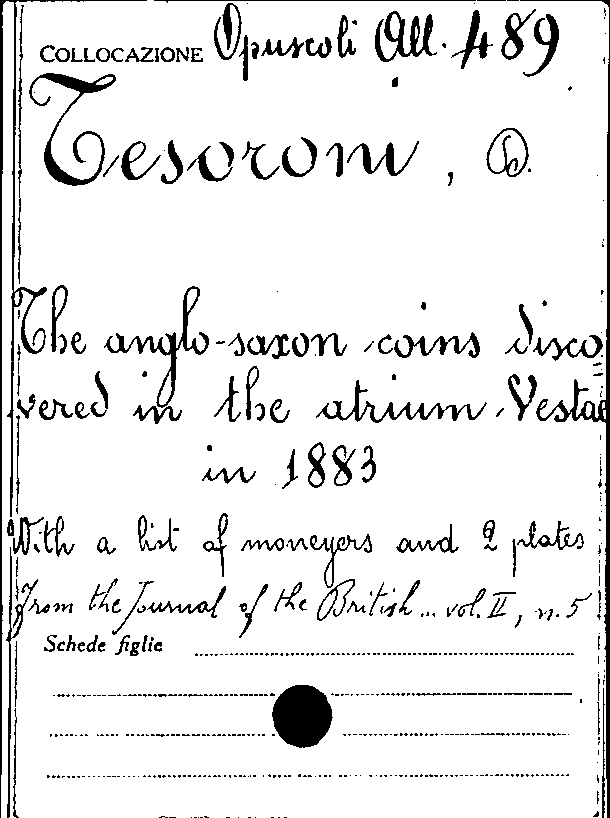 COLLOCAZIONE Opuscoli All. 489
Tesoroni, D.
The anglo-saxon coins disco
vered in the atrium Vestae
in 1883
With a list of moneyers and 2 plates
From the Journal of the British... vol. II, n. 5
Schede figlie